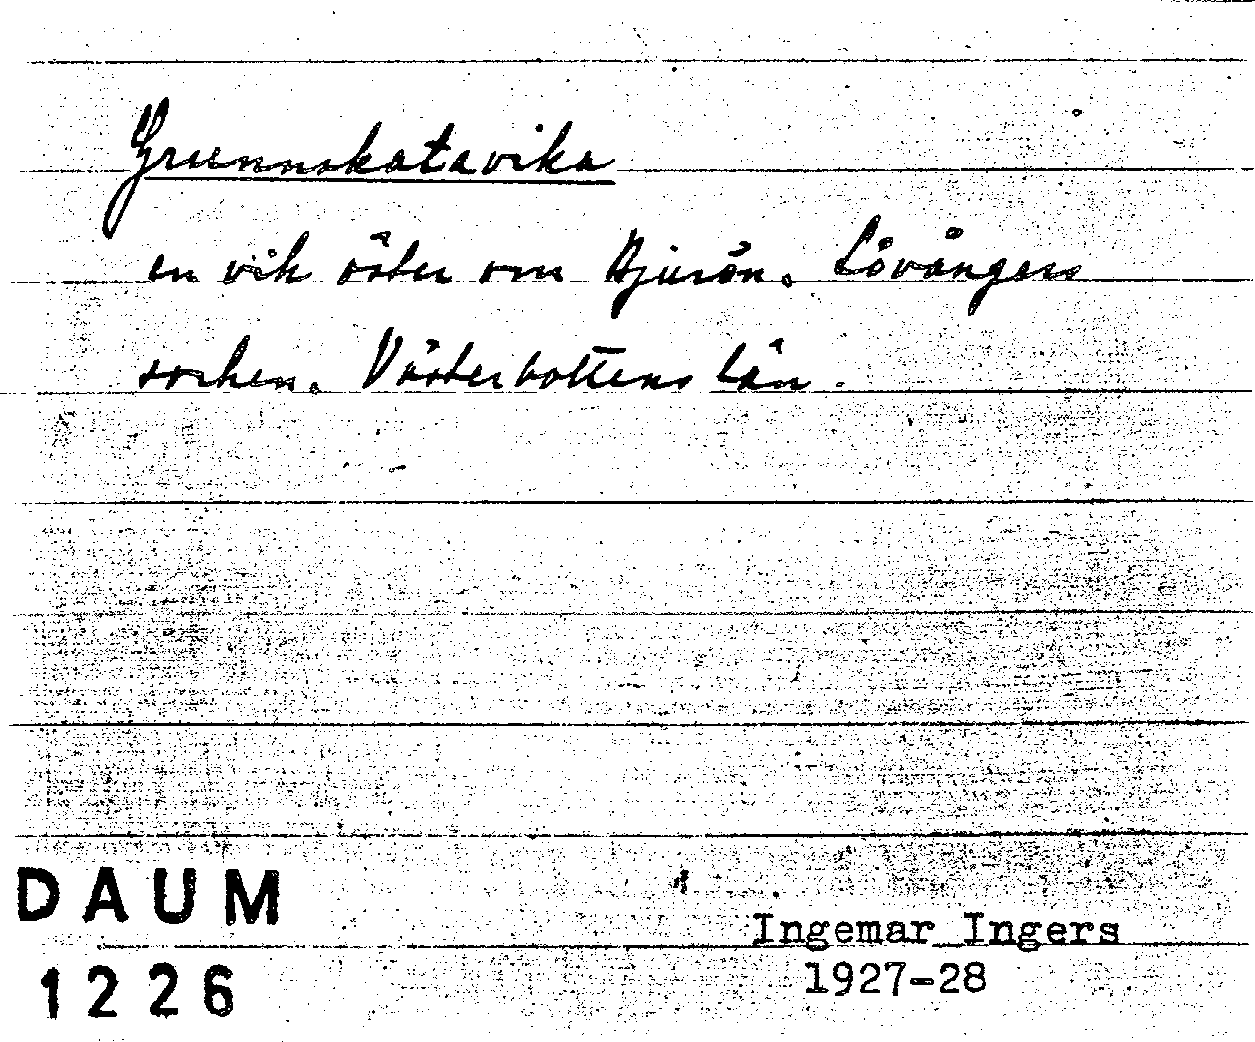 Grunnskatavika
en vik öster om Bjurön. Lövångers
socken. Västerbottens län.
DAUM
1226
Ingemar Ingers
1927-28